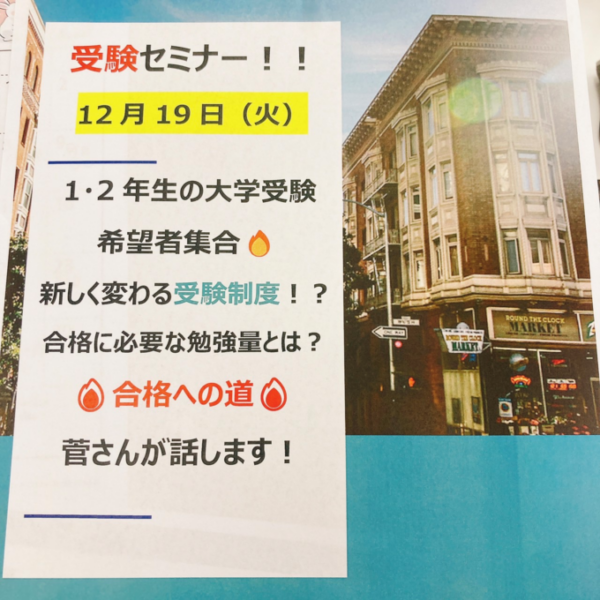 受験セミナー！！
12月19日（火）
1・2年生の大学受験
希望者集合🔥
新しく変わる受験制度！？
合格に必要な勉強量とは？
🔥合格への道🔥
菅さんが話します！
ROUND THE CLOCK
MARKET
ROUND THE CLOCK
MARKET